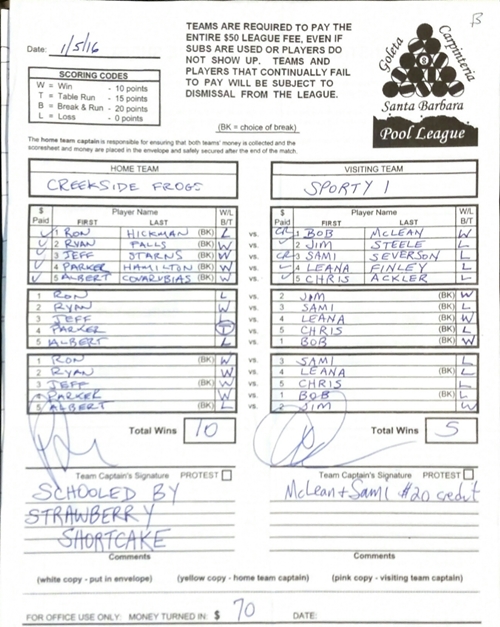 B
Date: 1/5/16
TEAMS ARE REQUIRED TO PAY THE
ENTIRE $50 LEAGUE FEE, EVEN IF
SUBS ARE USED OR PLAYERS DO
NOT SHOW UP. TEAMS AND
PLAYERS THAT CONTINUALLY FAIL
TO PAY WILL BE SUBJECT TO
DISMISSAL FROM THE LEAGUE.
Goleta
Carpinteria
8
Santa Barbara
Pool League
SCORING CODES
W = Win - 10 points
T = Table Run - 15 points
B = Break & Run - 20 points
L = Loss - 0 points
(BK = choice of break)
The home team captain is responsible for ensuring that both teams' money is collected and the
scoresheet and money are placed in the envelope and safely secured after the end of the match.
HOME TEAM VISITING TEAM
CREEKSIDE FROGS SPORTY 1
$ Paid Player Name FIRST LAST W/L B/T $ Paid Player Name FIRST LAST W/L B/T
✓ 1 RON HICKMAN (BK) L vs. CR 1 BOB McLEAN W
✓ 2 RYAN FALLS (BK) W vs. ✓ 2 JIM STEELE L
✓ 3 JEFF STARNS (BK) W vs. CR 3 SAMI SEVERSON L
✓ 4 PARKER HAMILTON (BK) W vs. ✓ 4 LEANA FINLEY L
✓ 5 ALBERT COVARUBIAS (BK) W vs. ✓ 5 CHRIS ACKLER L
1 RON L vs. 2 JIM (BK) W
2 RYAN W vs. 3 SAMI (BK) L
3 JEFF L vs. 4 LEANA (BK) W
4 PARKER T vs. 5 CHRIS (BK) L
5 ALBERT L vs. 1 BOB (BK) W
1 RON (BK) W vs. 3 SAMI L
2 RYAN W vs. 4 LEANA (BK) L
3 JEFF (BK) W vs. 5 CHRIS L
4 PARKER W vs. 1 BOB (BK) L
5 ALBERT (BK) L vs. 2 JIM W
Total Wins 10 Total Wins 5
Team Captain's Signature PROTEST Team Captain's Signature PROTEST
SCHOOLED BY McLean + Sami #20 credit
STRAWBERRY
SHORTCAKE
Comments Comments
(white copy - put in envelope) (yellow copy - home team captain) (pink copy - visiting team captain)
FOR OFFICE USE ONLY: MONEY TURNED IN: $ 70 DATE: